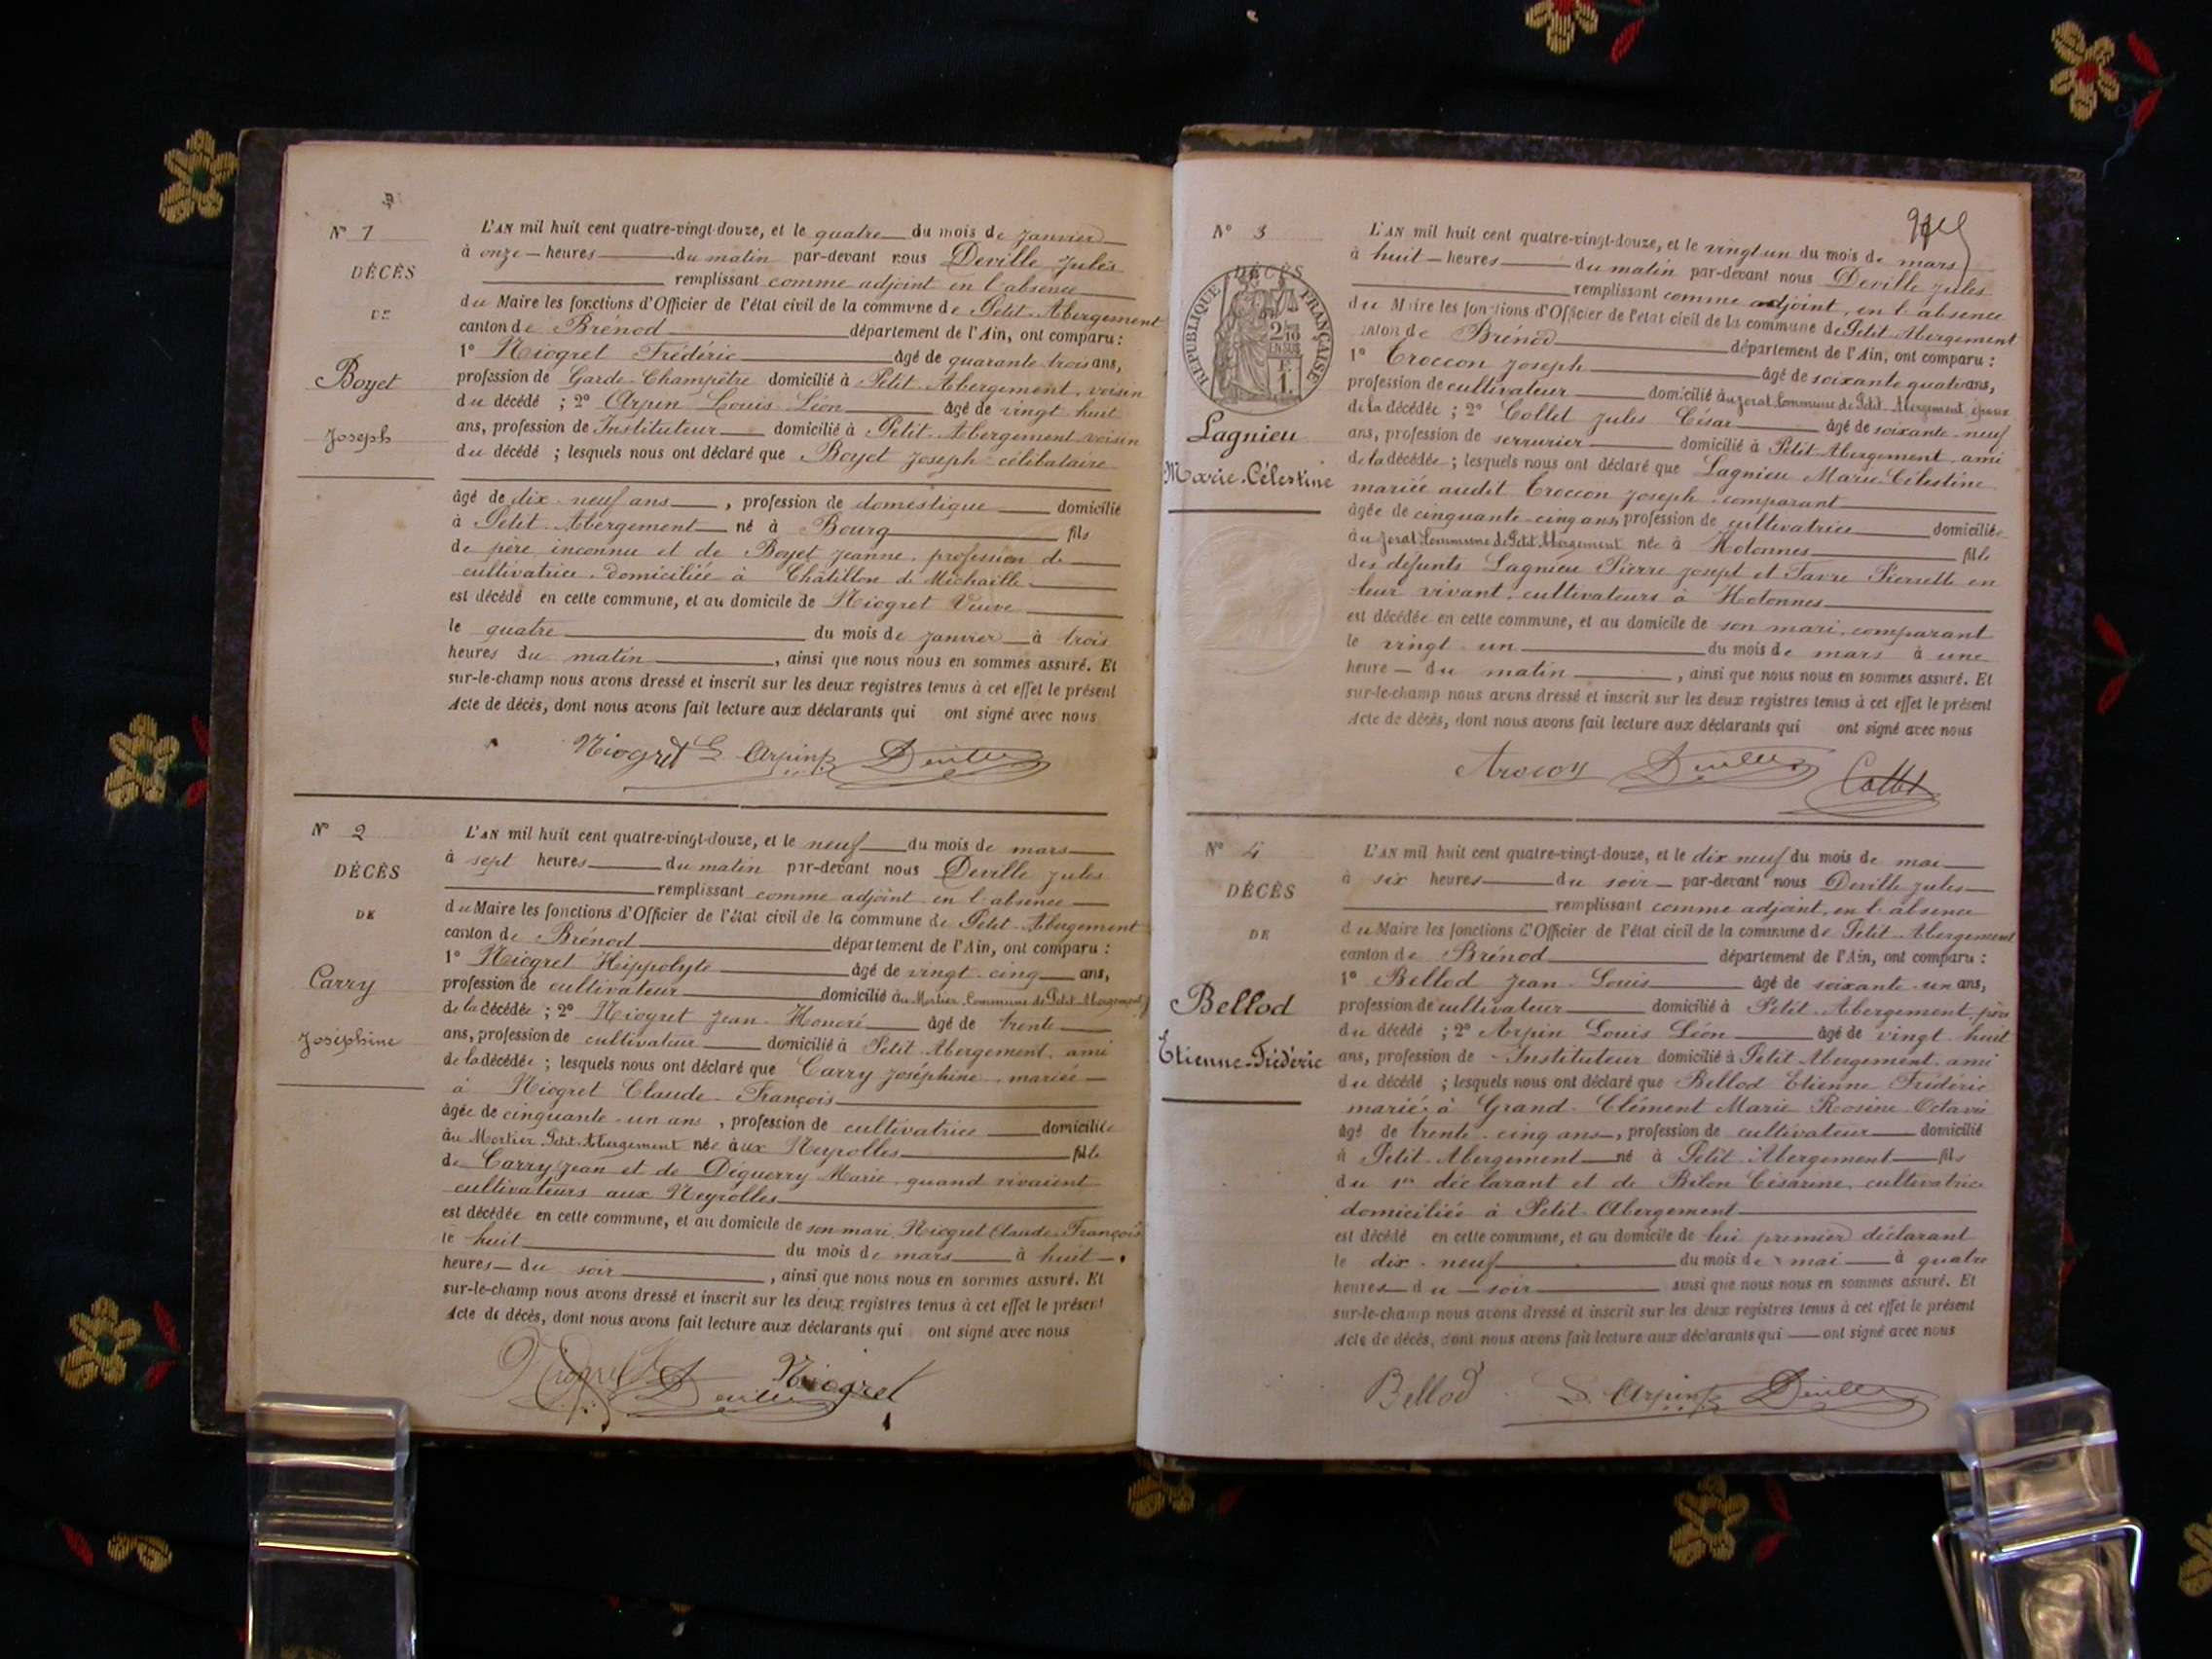 N° 1
DÉCÈS
DE
Boyet
Joseph
L'AN mil huit cent quatre-vingt-douze, et le quatre du mois de Janvier
à onze heures du matin par-devant nous Deville Jules
remplissant comme adjoint en l'absence
du Maire les fonctions d'Officier de l'état civil de la commune de Petit-Abergement
canton de Brénod département de l'Ain, ont comparu :
1° Niogret Frédéric âgé de quarante trois ans,
profession de Garde-Champêtre domicilié à Petit-Abergement, voisin
du décédé ; 2° Arpin Louis Léon âgé de vingt huit
ans, profession de Instituteur domicilié à Petit-Abergement voisin
du décédé ; lesquels nous ont déclaré que Boyet Joseph célibataire
âgé de dix-neuf ans, profession de domestique domicilié
à Petit-Abergement né à Bourg fils
de père inconnu et de Boyet Jeanne, profession de
cultivatrice, domiciliée à Châtillon de Michaille
est décédé en cette commune, et au domicile de Niogret Veuve
le quatre du mois de Janvier à trois
heures du matin, ainsi que nous nous en sommes assuré. Et
sur-le-champ nous avons dressé et inscrit sur les deux registres tenus à cet effet le présent
Acte de décès, dont nous avons fait lecture aux déclarants qui ont signé avec nous
Niogret L Arpin Deville
N° 2
DÉCÈS
DE
Carry
Joséphine
L'AN mil huit cent quatre-vingt-douze, et le neuf du mois de mars
à sept heures du matin par-devant nous Deville Jules
remplissant comme adjoint en l'absence
du Maire les fonctions d'Officier de l'état civil de la commune de Petit-Abergement
canton de Brénod département de l'Ain, ont comparu :
1° Niogret Hippolyte âgé de vingt-cinq ans,
profession de cultivateur domicilié au Mortier Commune de Petit-Abergement
de la décédée ; 2° Niogret Jean-Honoré âgé de trente
ans, profession de cultivateur domicilié à Petit-Abergement, ami
de la décédée ; lesquels nous ont déclaré que Carry Joséphine, mariée
à Niogret Claude-François
âgée de cinquante-un ans, profession de cultivatrice domiciliée
au Mortier Petit-Abergement née aux Neyrolles fille
de Carry Jean et de Déguerry Marie, quand vivaient
cultivateurs aux Neyrolles
est décédée en cette commune, et au domicile de son mari, Niogret Claude-François
le huit du mois de mars à huit
heures du soir, ainsi que nous nous en sommes assuré. Et
sur-le-champ nous avons dressé et inscrit sur les deux registres tenus à cet effet le présent
Acte de décès, dont nous avons fait lecture aux déclarants qui ont signé avec nous
Niogret Deville Niogret
N° 3
DÉCÈS
RÉPUBLIQUE FRANÇAISE
2/10 EN SUS
F. 1
Lagnieu
Marie-Célestine
L'AN mil huit cent quatre-vingt-douze, et le vingt un du mois de mars
à huit heures du matin par-devant nous Deville Jules
remplissant comme adjoint, en l'absence
du Maire les fonctions d'Officier de l'état civil de la commune de Petit-Abergement
canton de Brénod département de l'Ain, ont comparu :
1° Troccon Joseph âgé de soixante quatre ans,
profession de cultivateur domicilié au Jorat Commune de Petit-Abergement, époux
de la décédée ; 2° Collet Jules César âgé de soixante-neuf
ans, profession de serrurier domicilié à Petit-Abergement, ami
de la décédée ; lesquels nous ont déclaré que Lagnieu Marie-Célestine
mariée audit Troccon Joseph, comparant
âgée de cinquante-cinq ans, profession de cultivatrice domiciliée
au Jorat Commune de Petit-Abergement née à Hotonnes fille
des défunts Lagnieu Pierre Josept et Favre Pierrette en
leur vivant, cultivateurs à Hotonnes
est décédée en cette commune, et au domicile de son mari, comparant
le vingt-un du mois de mars à une
heure du matin, ainsi que nous nous en sommes assuré. Et
sur-le-champ nous avons dressé et inscrit sur les deux registres tenus à cet effet le présent
Acte de décès, dont nous avons fait lecture aux déclarants qui ont signé avec nous
Deville Collet
N° 4
DÉCÈS
DE
Bellod
Etienne-Frédéric
L'AN mil huit cent quatre-vingt-douze, et le dix neuf du mois de mai
à six heures du soir par-devant nous Deville Jules
remplissant comme adjoint, en l'absence
du Maire les fonctions d'Officier de l'état civil de la commune de Petit-Abergement
canton de Brénod département de l'Ain, ont comparu :
1° Bellod Jean-Louis âgé de soixante-un ans,
profession de cultivateur domicilié à Petit-Abergement, père
du décédé ; 2° Arpin Louis Léon âgé de vingt-huit
ans, profession de Instituteur domicilié à Petit-Abergement, ami
du décédé ; lesquels nous ont déclaré que Bellod Etienne Frédéric
marié à Grand-Clément Marie Rosine Octavie
âgé de trente-cinq ans, profession de cultivateur domicilié
à Petit-Abergement né à Petit-Abergement fils
du 1er déclarant et de Bilon Césarine, cultivatrice
domiciliée à Petit-Abergement
est décédé en cette commune, et au domicile de lui premier déclarant
le dix-neuf du mois de mai à quatre
heures du soir ainsi que nous nous en sommes assuré. Et
sur-le-champ nous avons dressé et inscrit sur les deux registres tenus à cet effet le présent
Acte de décès, dont nous avons fait lecture aux déclarants qui ont signé avec nous
Bellod L. Arpin Deville